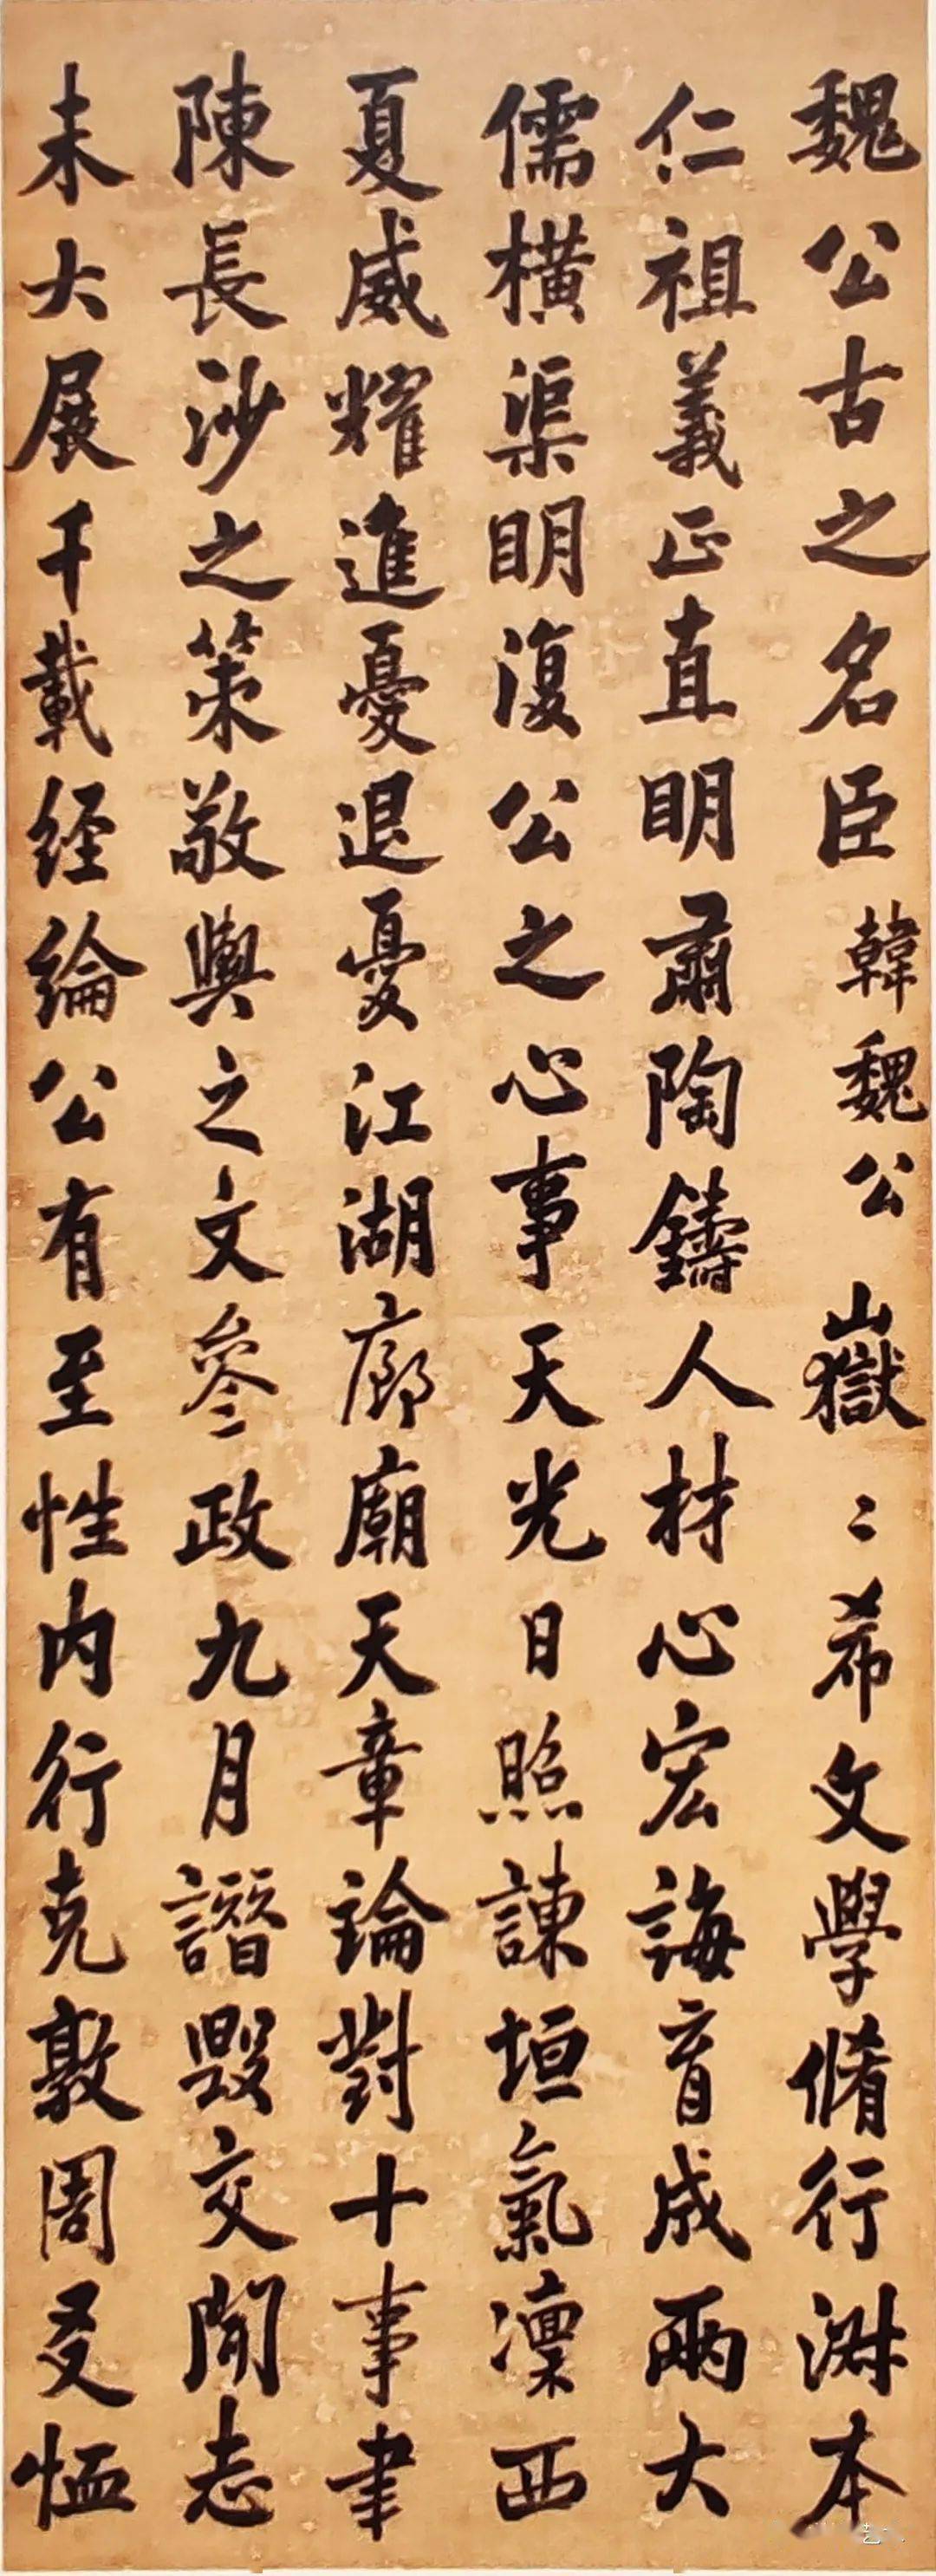 魏公古之名臣韓魏公山嶽〻希文學脩行淋本
仁祖義正直明肅陶鑄人材心宏誨育成兩大
儒橫渠明復公之心事天光日照諫垣氣凜西
夏威耀進憂退憂江湖廊廟天章論對十事聿
陳長沙之策敬輿之文參政九月譖毀交閒志
未大展千載經綸公有至性內行克敦周爰恤